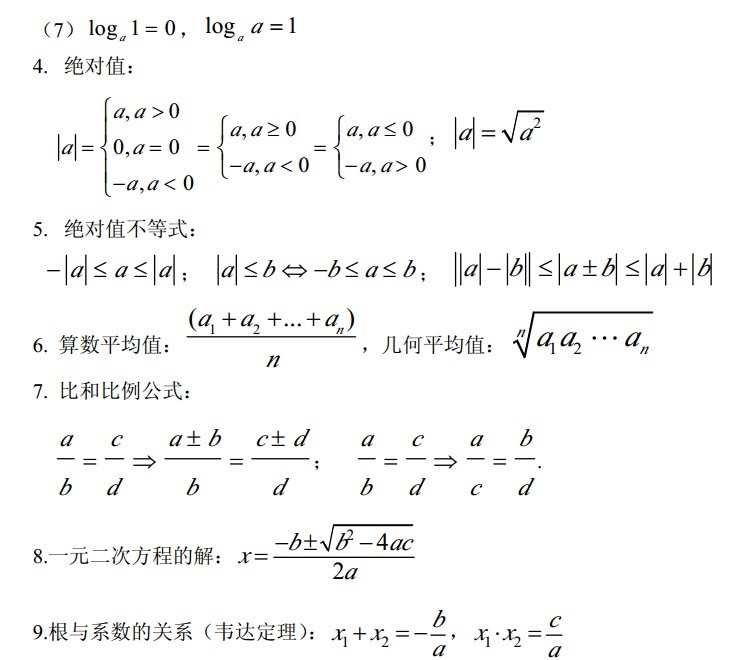 （7）logₐ 1 = 0，logₐ a = 1
4. 绝对值：
|a| = { a, a > 0; 0, a = 0; −a, a < 0 = { a, a ≥ 0; −a, a < 0 = { a, a ≤ 0; −a, a > 0 ； |a| = √(a²)
5. 绝对值不等式：
−|a| ≤ a ≤ |a|； |a| ≤ b ⇔ −b ≤ a ≤ b； ||a| − |b|| ≤ |a ± b| ≤ |a| + |b|
6. 算数平均值： (a₁ + a₂ + ... + aₙ) / n ，几何平均值： ⁿ√(a₁a₂ ⋯ aₙ)
7. 比和比例公式：
a/b = c/d ⇒ (a ± b)/b = (c ± d)/d； a/b = c/d ⇒ a/c = b/d.
8.一元二次方程的解： x = (−b ± √(b² − 4ac)) / 2a
9.根与系数的关系（韦达定理）： x₁ + x₂ = −b/a， x₁·x₂ = c/a